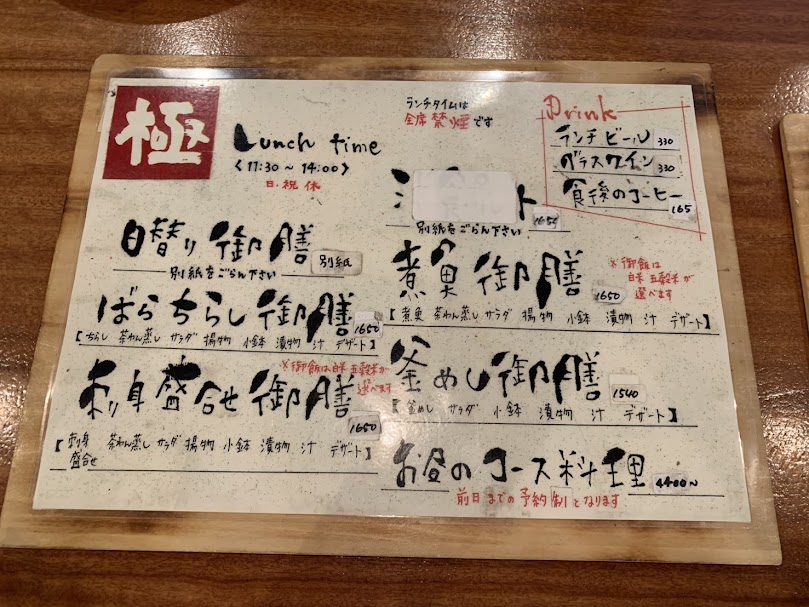 極
Lunch time
〈11:30～14:00〉
日・祝 休
ランチタイムは
全席禁煙です
Drink
ランチビール 330
グラスワイン 330
食後のコーヒー 165
日替り御膳 別紙
別紙をごらん下さい
ばらちらし御膳 1650
【ちらし 茶わん蒸し サラダ 揚物 小鉢 漬物 汁 デザート】
※御飯は白米 五穀米が
選べます
刺身盛合せ御膳 1650
【刺身盛合せ 茶わん蒸し サラダ 揚物 小鉢 漬物 汁 デザート】
ト 1650
別紙をごらん下さい
煮魚御膳 1650
※御飯は
白米 五穀米が
選べます
【煮魚 茶わん蒸し サラダ 揚物 小鉢 漬物 汁 デザート】
釜めし御膳 1540
【釜めし サラダ 小鉢 漬物 汁 デザート】
お昼のコース料理 4400～
前日までの予約制となります